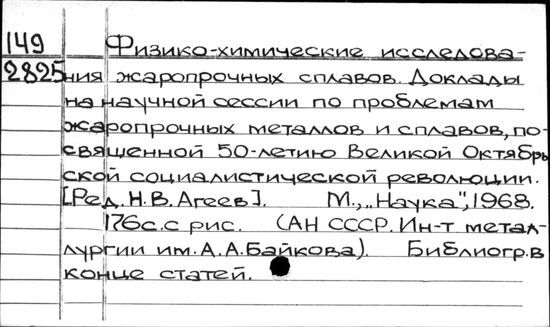 149 Физико-химические исследова-
2825 ния жаропрочных сплавов. Доклады
на научной сессии по проблемам
жаропрочных металлов и сплавов, по-
священной 50-летию Великой Октябрь
ской социалистической революции.
[Ред. Н.В. Агеев]. М., „Наука", 1968.
176с. с рис. (АН СССР. Ин-т метал-
лургии им. А.А. Байкова). Библиогр. в
конце статей.